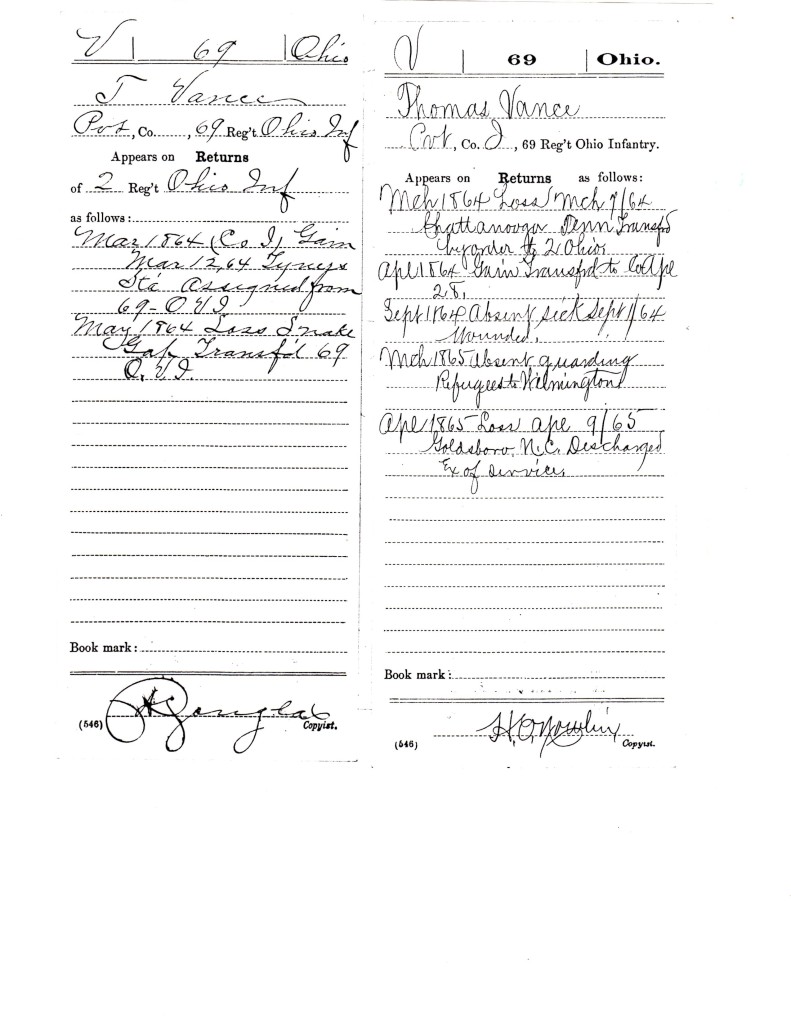 V | 69 | Ohio
T Vance
Pvt, Co. ......, 69 Reg't Ohio Inf
Appears on Returns
of 2 Reg't Ohio Inf
as follows:
Mar 1864 (Co I) Gain
Mar 12, 64 Tyneys
Sta Assigned from
69 - O V I
May 1864 Loss Snake
Gap Transf'd 69
O. V. I.
Book mark:
(546)
Copyist.
V | 69 | Ohio.
Thomas Vance
Pvt, Co. I, 69 Reg't Ohio Infantry.
Appears on Returns as follows:
Mch 1864 Loss Mch 9/64
Chattanooga Tenn Transfd
by order to 2 Ohio
Apl 1864 Gain Transfrd to Co Apl
28,
Sept 1864 Absent sick Sept 1/64
Wounded.
Mch 1865 Absent guarding
Refugees to Wilmington
Apl 1865 Loss Apl 9/65
Goldsboro, N.C. Discharged
Ex of Service,
Book mark:
H. O. Nowlin
(546) Copyist.